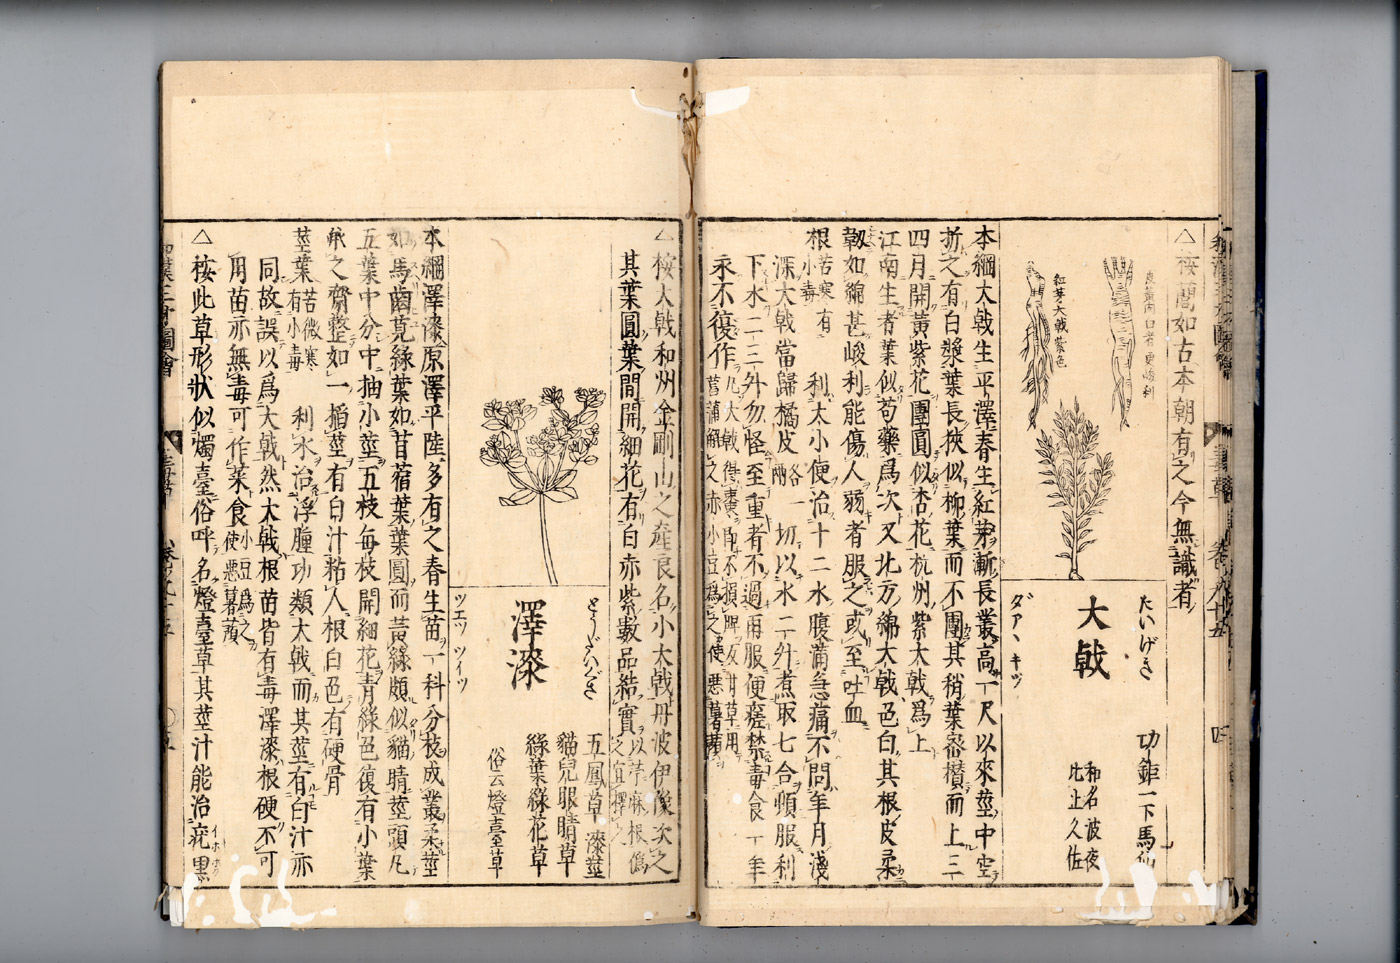 △桉藺如古本朝有之今無識者
皮黃肉白者更峻利
紅芽大戟紫色
たいげき
大戟
ダアヽキツ
功鉅 下馬仙
和名波夜
比止久佐
本綱大戟生平澤春生紅芽漸長叢高一尺以來莖中空
折之有白漿葉長狹似柳葉而不團其稍葉密攅而上三
四月開黃紫花團圓似杏花杭州紫大戟爲上
江南生者葉似芍藥爲次又北方綿大戟色白其根皮柔
靱如綿甚峻利能傷人弱者服之或至吐血
根苦寒有小毒 利大小便治十二水腹滿急痛不問年月淺
深大戟當歸橘皮各一兩切以水二升煮取七合頓服利
下水二三升勿怪至重者不過再服便瘥禁毒食一年
永不復作
△桉大戟和州金剛山之產良名小大戟丹波伊豫次之
其葉圓葉間開細花有白赤紫數品結實以苧麻根僞之宜擇之
とうだいぐさ
澤漆
ツエツ ツイツ
五鳳草 漆莖
貓兒眼睛草
綠葉綠花草
俗云燈臺草
本綱澤漆原澤平陸多有之春生苗一科分枝成叢柔莖
如馬齒莧綠葉如苜蓿葉葉圓而黃綠頗似貓睛莖頭凡
五葉中分中抽小莖五枝每枝開細花青綠色復有小葉
承之齊整如一搯莖有白汁粘人根白色有硬骨
莖葉苦微寒有小毒 利水治浮腫功類大戟而其莖有白汁亦
同故誤以爲大戟然大戟根苗皆有毒澤漆根硬不可
用苗亦無毒可作菜食小豆爲之使惡薯蕷
△桉此草形狀似燭臺俗呼名燈臺草其莖汁能治疣黑
和漢三才圖會